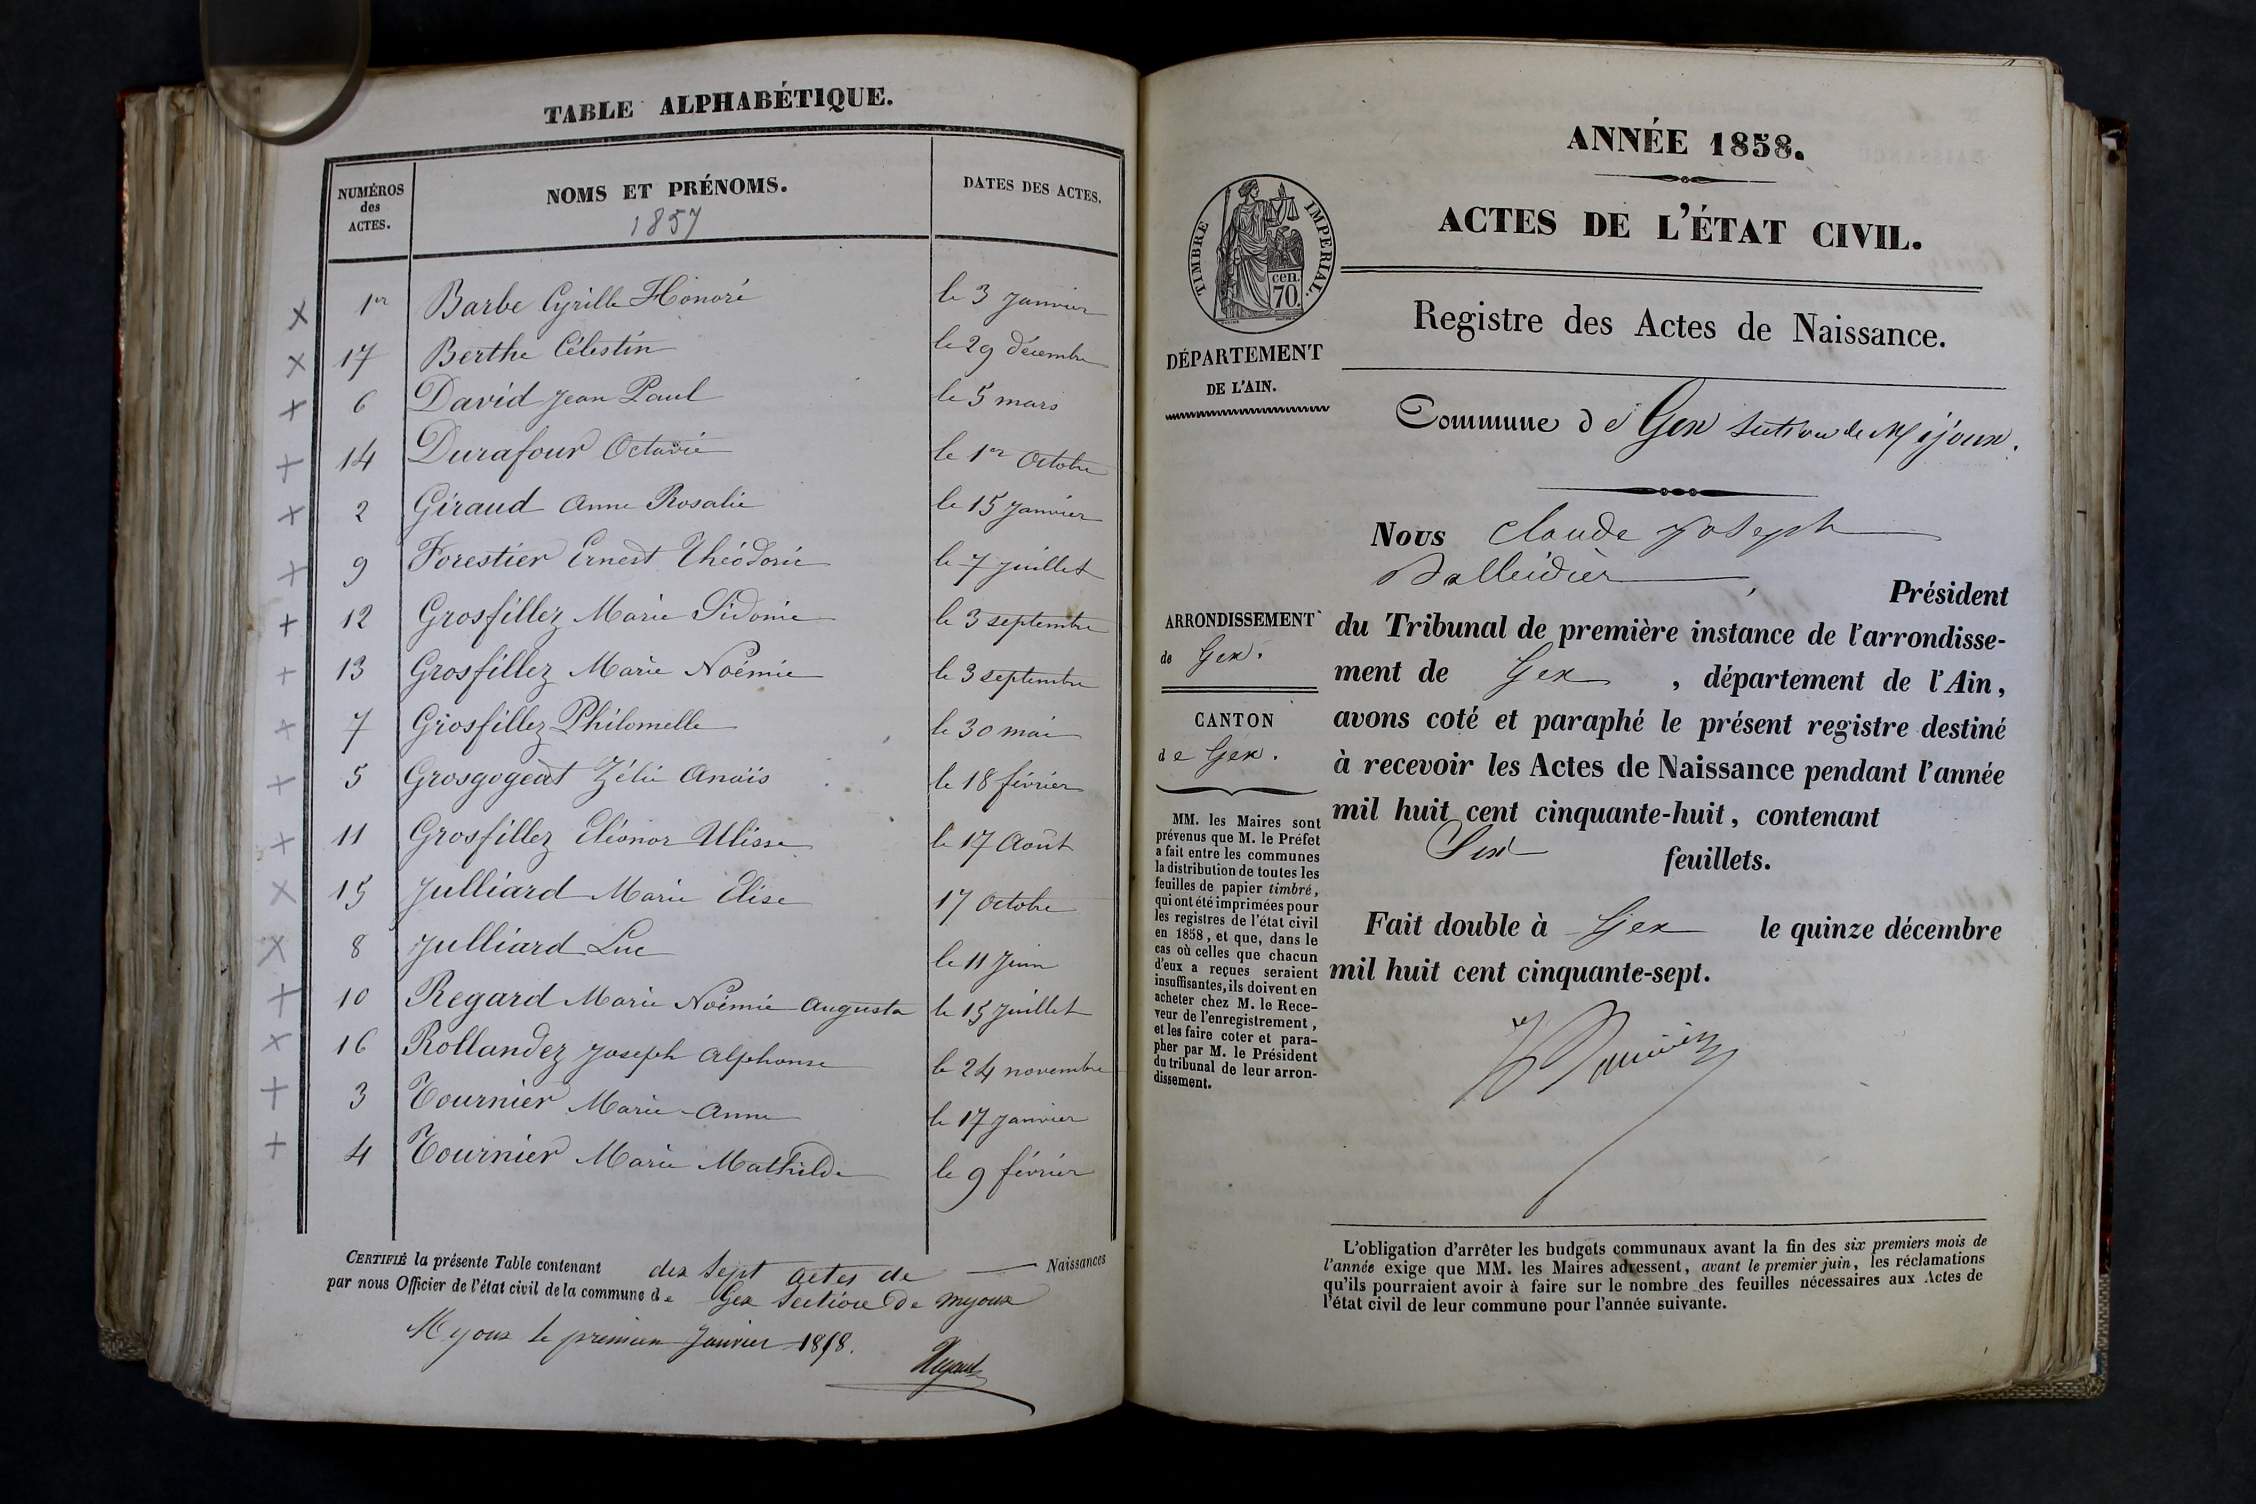 TABLE ALPHABÉTIQUE.
NUMÉROS des ACTES.
NOMS ET PRÉNOMS.
1857
DATES DES ACTES.
1er Barbe Cyrille Honoré le 3 Janvier
17 Berthe Célestin le 29 décembre
6 David Jean Paul le 5 mars
14 Durafour Octavie le 1er Octobre
2 Giraud Anne Rosalie le 15 Janvier
9 Forestier Ernest Théodorie le 7 Juillet
12 Grosfillez Marie Sidonie le 3 septembre
13 Grosfillez Marie Noémie le 3 septembre
7 Grosfillez Philomelle le 30 mai
5 Grosgogeat Zélie Anaïs le 18 février
11 Grosfillez Eléonor Ulisse le 17 Août
15 Julliard Marie Elise 17 Octobre
8 Julliard Luc le 11 Juin
10 Regard Marie Noémie Augusta le 15 Juillet
16 Rollandez Joseph Alphonse le 24 novembre
3 Tournier Marie-Anne le 17 Janvier
4 Tournier Marie Mathilde le 9 février
CERTIFIÉ la présente Table contenant dix sept actes de Naissances
par nous Officier de l'état civil de la commune de Gex section de mijoux
Mijoux le premier Janvier 1858.
ANNÉE 1858.
ACTES DE L'ÉTAT CIVIL.
TIMBRE IMPERIAL.
cen.
70.
Registre des Actes de Naissance.
DÉPARTEMENT
DE L'AIN.
Commune de Gex section de Mijoux.
Nous Claude Joseph
Balleidier, Président
du Tribunal de première instance de l'arrondisse-
ment de Gex, département de l'Ain,
avons coté et paraphé le présent registre destiné
à recevoir les Actes de Naissance pendant l'année
mil huit cent cinquante-huit, contenant
Six feuillets.
Fait double à Gex le quinze décembre
mil huit cent cinquante-sept.
ARRONDISSEMENT
de Gex.
CANTON
de Gex.
MM. les Maires sont
prévenus que M. le Préfet
a fait entre les communes
la distribution de toutes les
feuilles de papier timbré,
qui ont été imprimées pour
les registres de l'état civil
en 1858, et que, dans le
cas où celles que chacun
d'eux a reçues seraient
insuffisantes, ils doivent en
acheter chez M. le Rece-
veur de l'enregistrement,
et les faire coter et para-
pher par M. le Président
du tribunal de leur arron-
dissement.
L'obligation d'arrêter les budgets communaux avant la fin des six premiers mois de
l'année exige que MM. les Maires adressent, avant le premier juin, les réclamations
qu'ils pourraient avoir à faire sur le nombre des feuilles nécessaires aux Actes de
l'état civil de leur commune pour l'année suivante.